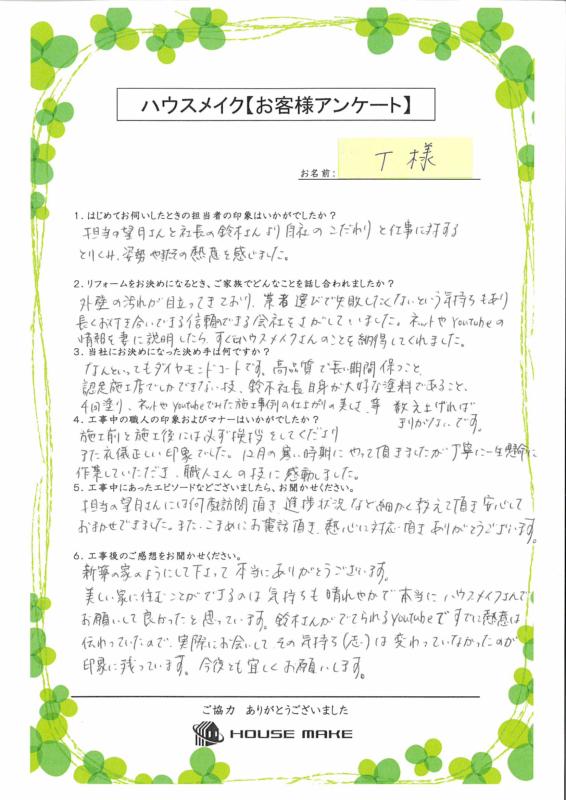 ハウスメイク【お客様アンケート】
お名前: T 様
1. はじめてお伺いしたときの担当者の印象はいかがでしたか?
担当の望月さんと社長の鈴木さんより自社のこだわりと仕事に対する
とりくみ、姿勢や行動の熱意を感じました。
2. リフォームをお決めになるとき、ご家族でどんなことを話し合われましたか?
外壁の汚れが目立ってきており、業者選びで失敗したくないという気持ちもあり
長くお付き合いできる信頼のできる会社をさがしていました。ネットやyoutubeの
情報を妻に説明したら、すぐにハウスメイクさんのことを納得してくれました。
3. 当社にお決めになった決め手は何ですか?
なんといってもダイヤモンドコートです。高品質で長い期間保つこと、
認定施工店でしかできない技、鈴木社長自身が大好な塗料であること、
4回塗り、ネットやyoutubeでみた施工事例の仕上がりの美しさ、等 数え上げれば
きりがないです。
4. 工事中の職人の印象およびマナーはいかがでしたか?
施工前と施工後には必ず挨拶をしてくださり
また礼儀正しい印象でした。12月の寒い時期にやって頂きましたが丁寧に一生懸命に
作業していただき、職人さんの技に感動しました。
5. 工事中にあったエピソードなどございましたら、お聞かせください。
担当の望月さんには何度訪問頂き 進捗状況など細かく教えて頂き安心して
おまかせできました。また、こまめにお電話頂き、熱心に対応頂きありがとうございます。
6. 工事後のご感想をお聞かせください。
新築の家のようにして下さって本当にありがとうございます。
美しい家に住むことができるのは気持ちも晴れやかで本当にハウスメイクさんで
お願いして良かったと思っています。鈴木さんがでてられるyoutubeですでに熱意は
伝わっていたので、実際にお会いしてその気持ち(志)は変わっていなかったのが
印象に残っています。今後とも宜しくお願いします。
ご協力 ありがとうございました
HOUSE MAKE